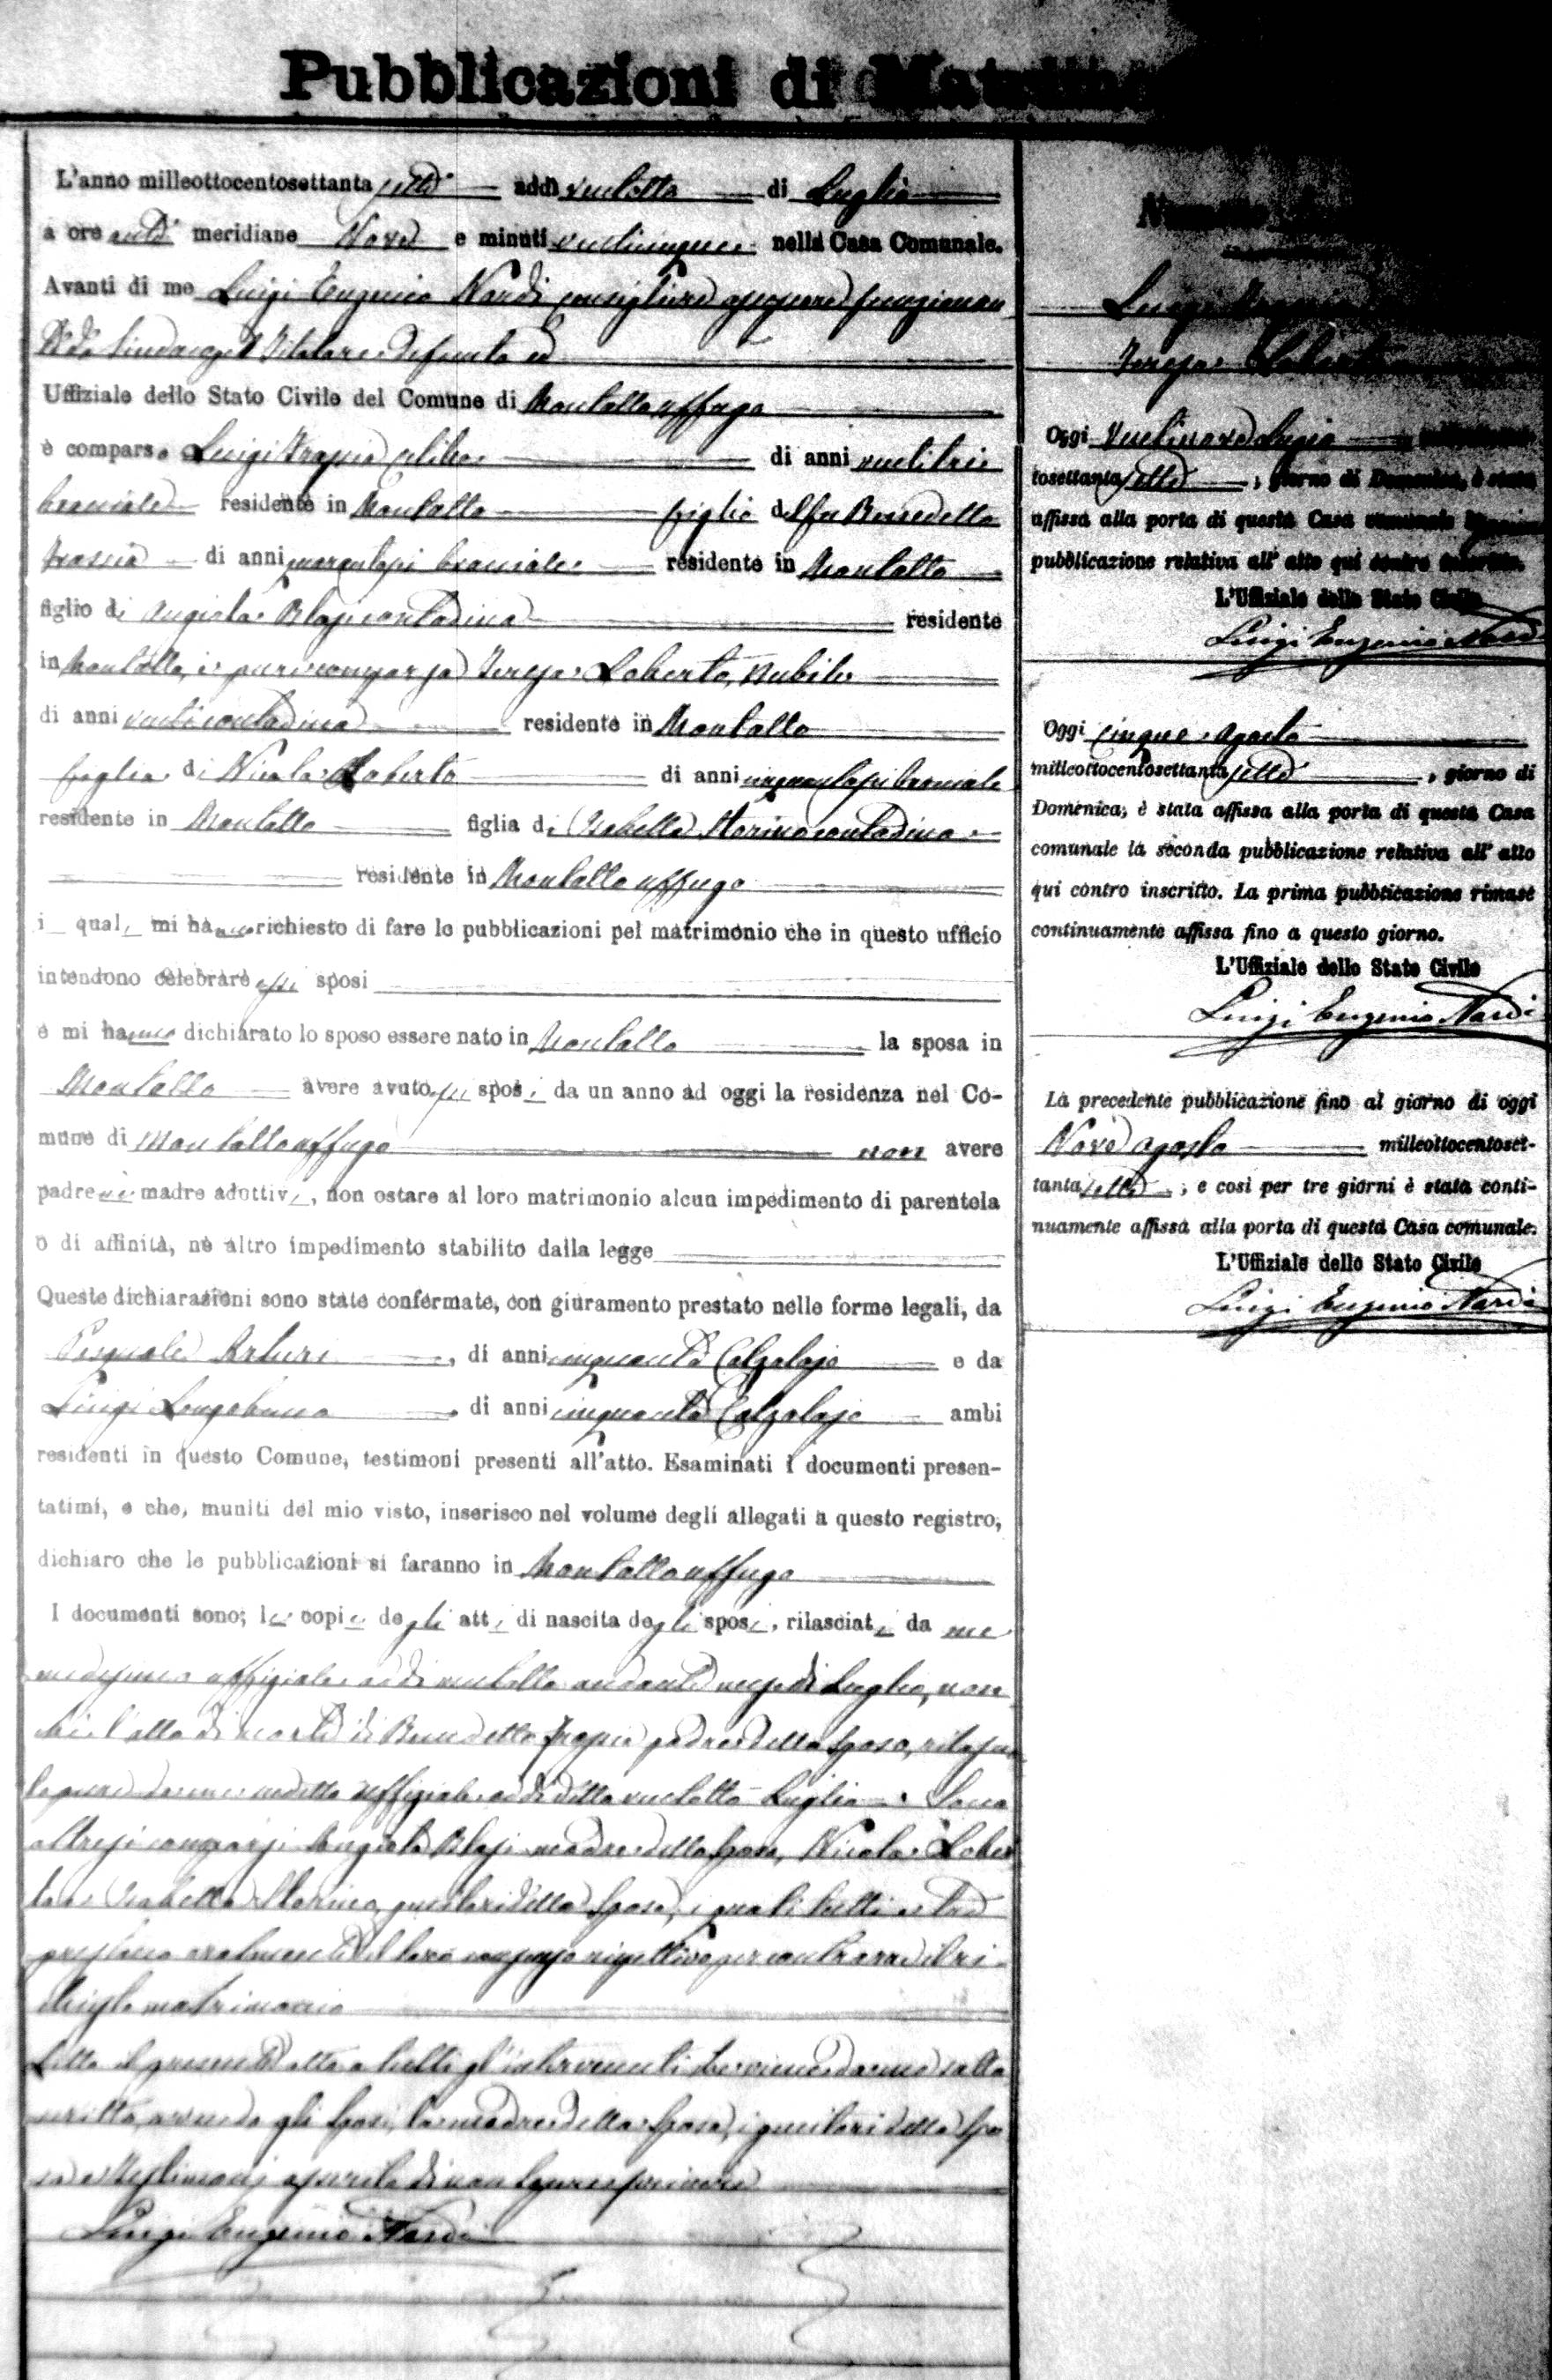 Pubblicazioni di
L'anno milleottocentosettanta sette addì ventotto di Luglio
a ore anti meridiane Nove e minuti venticinque nella Casa Comunale.
Avanti di me Luigi Eugenio Nardi consigliere
Sindaco Titolare defunto ed
Uffiziale dello Stato Civile del Comune di Montalto uffugo
è comparso Luigi celibe di anni ventitrie
bracciale residente in Montalto figlio del fu Benedetto
di anni bracciale residente in Montalto
figlio di Angiola Blasi contadina residente
in Montalto, è pure comparsa Teresa Loberto, nubile
di anni venti contadina residente in Montalto
figlia di Nicola Loberto di anni cinquantasei bracciale
residente in Montalto figlia di Isabella Storino contadina
residente in Montalto uffugo
i quali mi hanno richiesto di fare le pubblicazioni pel matrimonio che in questo ufficio
intendono celebrare essi sposi
e mi hanno dichiarato lo sposo essere nato in Montalto la sposa in
Montalto avere avuto essi sposi da un anno ad oggi la residenza nel Co-
mune di Montalto uffugo non avere
padre nè madre adottivi, non ostare al loro matrimonio alcun impedimento di parentela
o di affinità, nè altro impedimento stabilito dalla legge
Queste dichiarazioni sono state confermate, con giuramento prestato nelle forme legali, da
Pasquale Arturi, di anni cinquanta Calzolajo e da
Luigi Longobucco, di anni cinquanta Calzolajo ambi
residenti in questo Comune, testimoni presenti all'atto. Esaminati i documenti presen-
tatimi, e che, muniti del mio visto, inserisco nel volume degli allegati a questo registro,
dichiaro che le pubblicazioni si faranno in Montalto uffugo
I documenti sono; le copie degli atti di nascita degli sposi, rilasciate da me
medesimo uffiziale addì ventotto andante mese di Luglio, non
chè l'atto di morte di Benedetto padre dello sposo, rilascia
to pure da me sudetto uffiziale addì detto ventotto Luglio. Sono
altresì comparsi Angiola Blasi madre dello sposo, Nicola Lober
to e Isabella Storino, genitori della sposa, i quali tutti e tre
prestano oralmente il loro consenso rispettivo per contrarre il ri
chiesto matrimonio
Letto il presente atto a tutti gl'intervenuti viene da me sotto
scritto, avendo gli sposi, la madre dello sposo, i genitori della spo
sa e testimonj asserito di non sapere scrivere
Luigi Eugenio Nardi
Luigi
Teresa Loberto
Oggi ventinove Luglio
tosettanta sette, giorno di Domenica, è stata
affissa alla porta di questa Casa comunale
pubblicazione relativa all'atto qui contro inscritto.
L'Uffiziale dello Stato Civile
Luigi Eugenio Nardi
Oggi cinque Agosto
milleottocentosettanta sette, giorno di
Domenica, è stata affissa alla porta di questa Casa
comunale la seconda pubblicazione relativa all'atto
qui contro inscritto. La prima pubblicazione rimase
continuamente affissa fino a questo giorno.
L'Uffiziale dello Stato Civile
Luigi Eugenio Nardi
La precedente pubblicazione fino al giorno di oggi
Nove Agosto milleottocentoset-
tanta sette, e così per tre giorni è stata conti-
nuamente affissa alla porta di questa Casa comunale.
L'Uffiziale dello Stato Civile
Luigi Eugenio Nardi